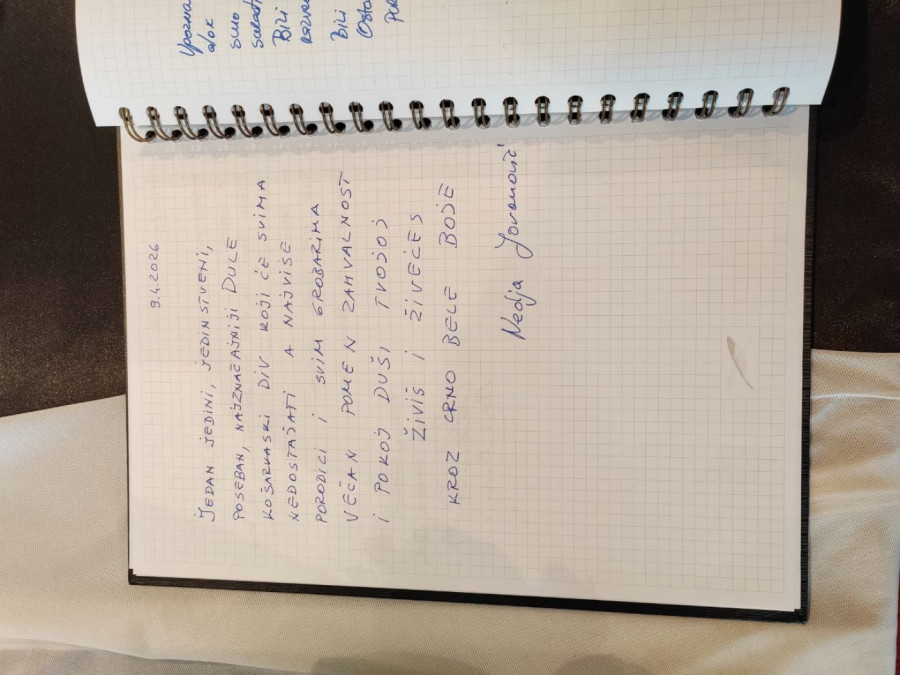 Upozna
dok
smo
Bili
Bili
9.4.2026
JEDAN JEDINI, JEDINSTVENI,
POSEBAN, NAJZNAČAJNIJI DULE
KOŠARKAŠKI DIV KOJI ĆE SVIMA
NEDOSTAJATI A NAJVIŠE
PORODICI I SVIM GROBARIMA
VEČAN POMEN ZAHVALNOST
I POKOJ DUŠI TVOJOJ
ŽIVIŠ I ŽIVEĆEŠ
KROZ CRNO BELE BOJE
Nedja Jovanović